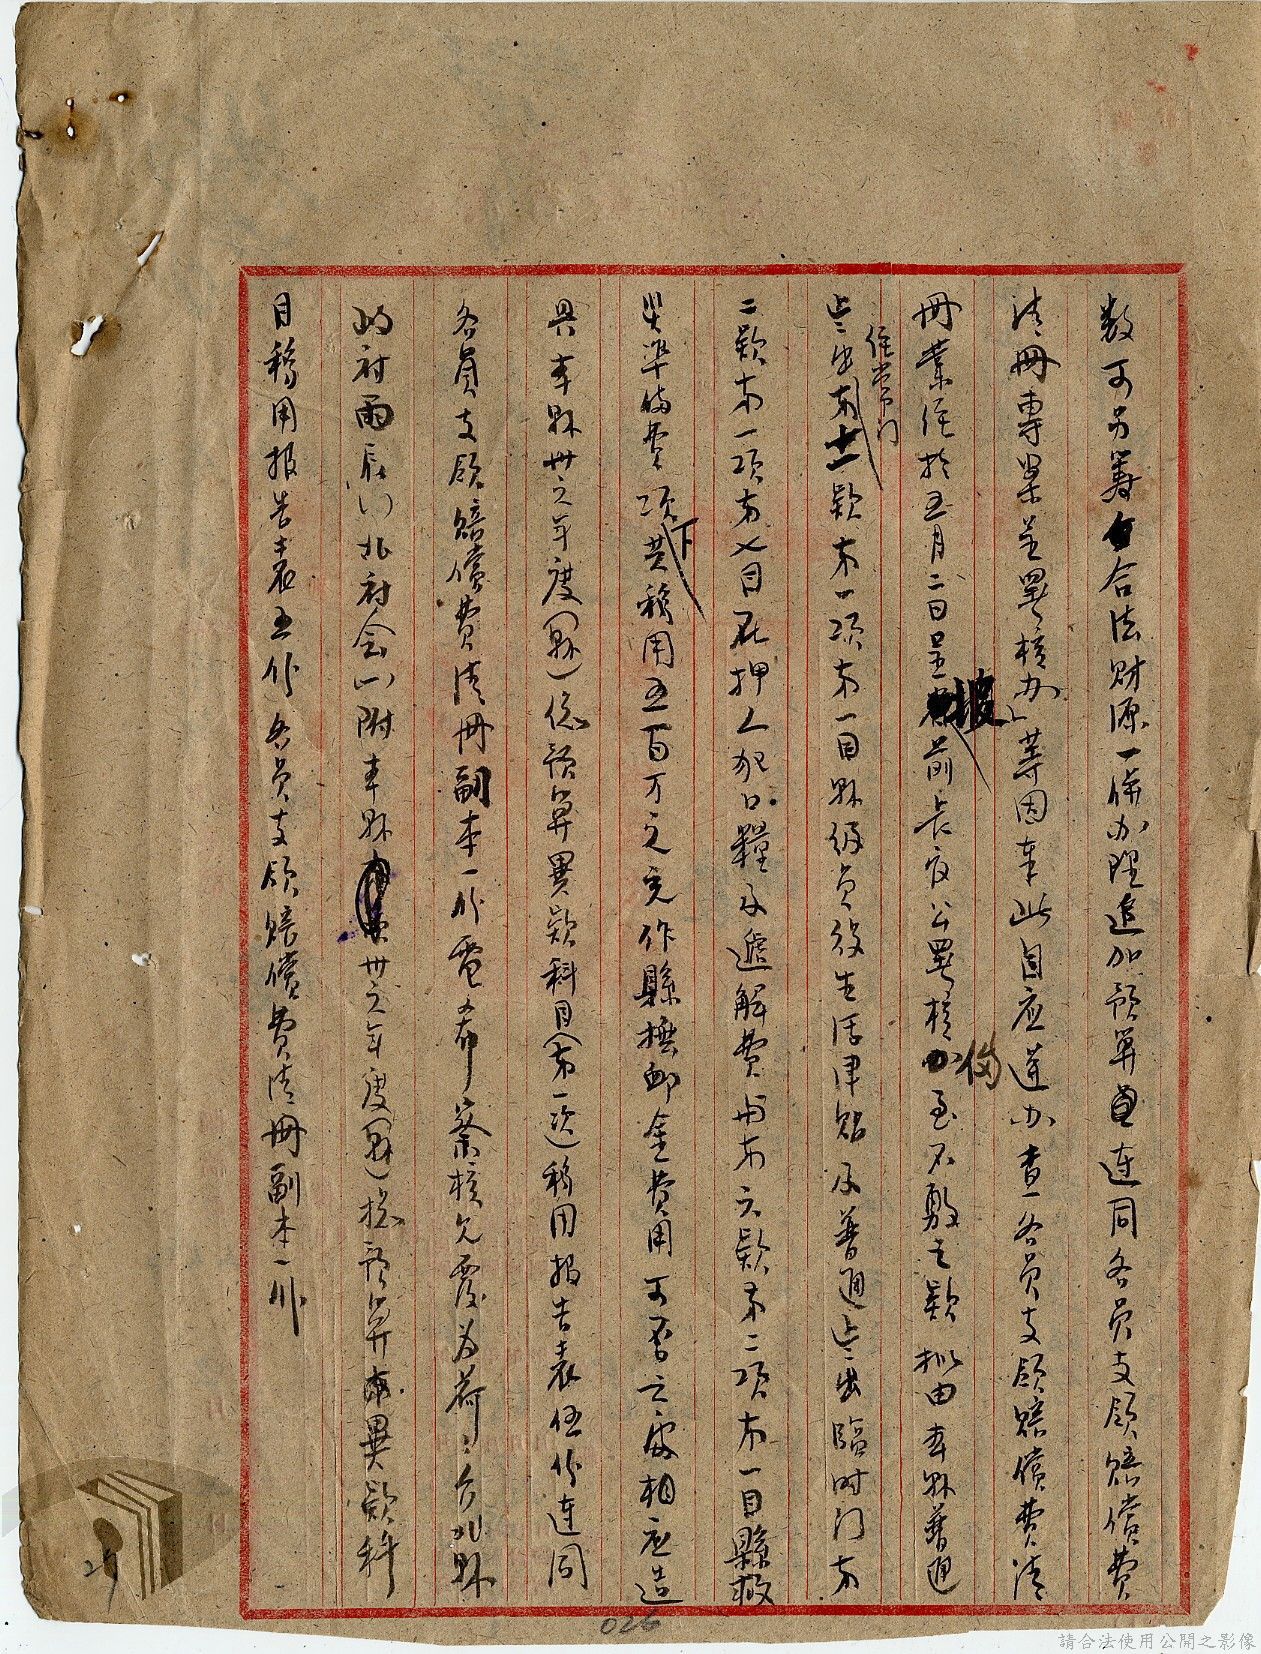 數可另籌合法財源一併办理追加預算連同各員支領賠償費
清冊專案呈署核办」等因奉此自应遵办查各員支領賠償費清
冊業経於五月二日呈報前長官公署核備至不敷之款擬由本縣普通
歲出経常门第十一款第一項第一目縣級員役生活津貼及普通歲出臨时门第
二款第一項第七目在押人犯口糧及遞解費与第六款第二項第一目縣救
災準備費項下共移用五百万元充作縣撫卹金費用可否之處相应造
具本縣卅六年度(縣)總預算異款科目(第一次)移用报告表伍份連同
各員支領賠償費清冊副本一份電希察核允覆为荷台北縣
政府 府会 附本縣卅六年度(縣)總預算異款科
目移用报告表五份各員支領賠償費清冊副本一份
026
29
請合法使用公開之影像